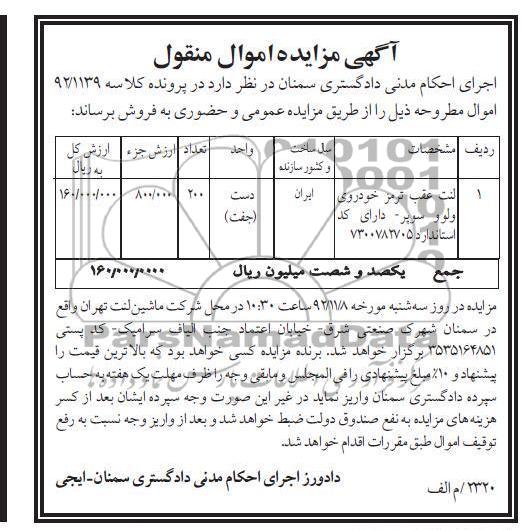 آگهی مزایده اموال منقول
اجرای احکام مدنی دادگستری سمنان در نظر دارد در پرونده کلاسه ۹۲/۱۱۳۹
اموال مطروحه ذیل را از طریق مزایده عمومی و حضوری به فروش برساند:
ردیف مشخصات سال ساخت و کشور سازنده واحد تعداد ارزش جزء ارزش کل به ریال
۱ لنت عقب ترمز خودروی ایران دست ۲۰۰ ۸۰۰/۰۰۰ ۱۶۰/۰۰۰/۰۰۰
ولوو سوپر- دارای کد (جفت)
استاندارد ۷۳۰۰۷۸۲۷۰۵
جمع یکصد و شصت میلیون ریال ۱۶۰/۰۰۰/۰۰۰۰
مزایده در روز سه‌شنبه مورخه ۹۲/۱۱/۸ ساعت ۱۰:۳۰ در محل شرکت ماشین لنت تهران واقع
در سمنان شهرک صنعتی شرق- خیابان اعتماد جنب الیاف سرامیک- کد پستی
۳۵۳۵۱۶۴۸۵۱ برگزار خواهد شد. برنده مزایده کسی خواهد بود که بالاترین قیمت را
پیشنهاد و ۱۰٪ مبلغ پیشنهادی را فی المجلس و مابقی وجه را ظرف مهلت یک هفته به حساب
سپرده دادگستری سمنان واریز نماید در غیر این صورت وجه سپرده ایشان بعد از کسر
هزینه‌های مزایده به نفع صندوق دولت ضبط خواهد شد و بعد از واریز وجه نسبت به رفع
توقیف اموال طبق مقررات اقدام خواهد شد.
دادورز اجرای احکام مدنی دادگستری سمنان-ایجی
۲۳۲۰/م الف
ParsNamadData